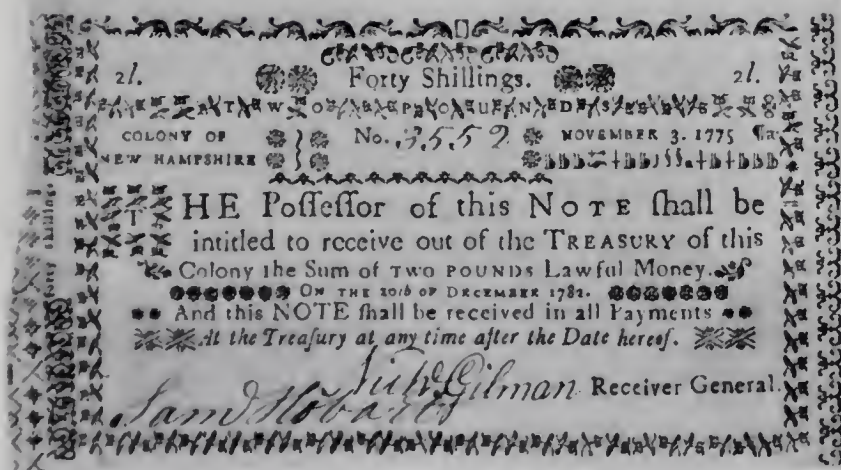 2l. Forty Shillings. 2l.
TWO POUNDS
COLONY OF NEW HAMPSHIRE No. 3552 NOVEMBER 3. 1775
THE Poſſeſſor of this NOTE ſhall be
intitled to receive out of the TREASURY of this
Colony the Sum of TWO POUNDS Lawful Money.
ON THE 20th OF DECEMBER 1782.
And this NOTE ſhall be received in all Payments
At the Treaſury at any time after the Date hereof.
Gilman Receiver General.
Sam Hobart
forty shillings